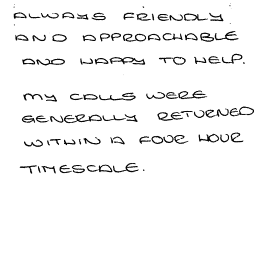 ALWAYS FRIENDLY
AND APPROACHABLE
AND HAPPY TO HELP.
MY CALLS WERE
GENERALLY RETURNED
WITHIN A FOUR HOUR
TIMESCALE.